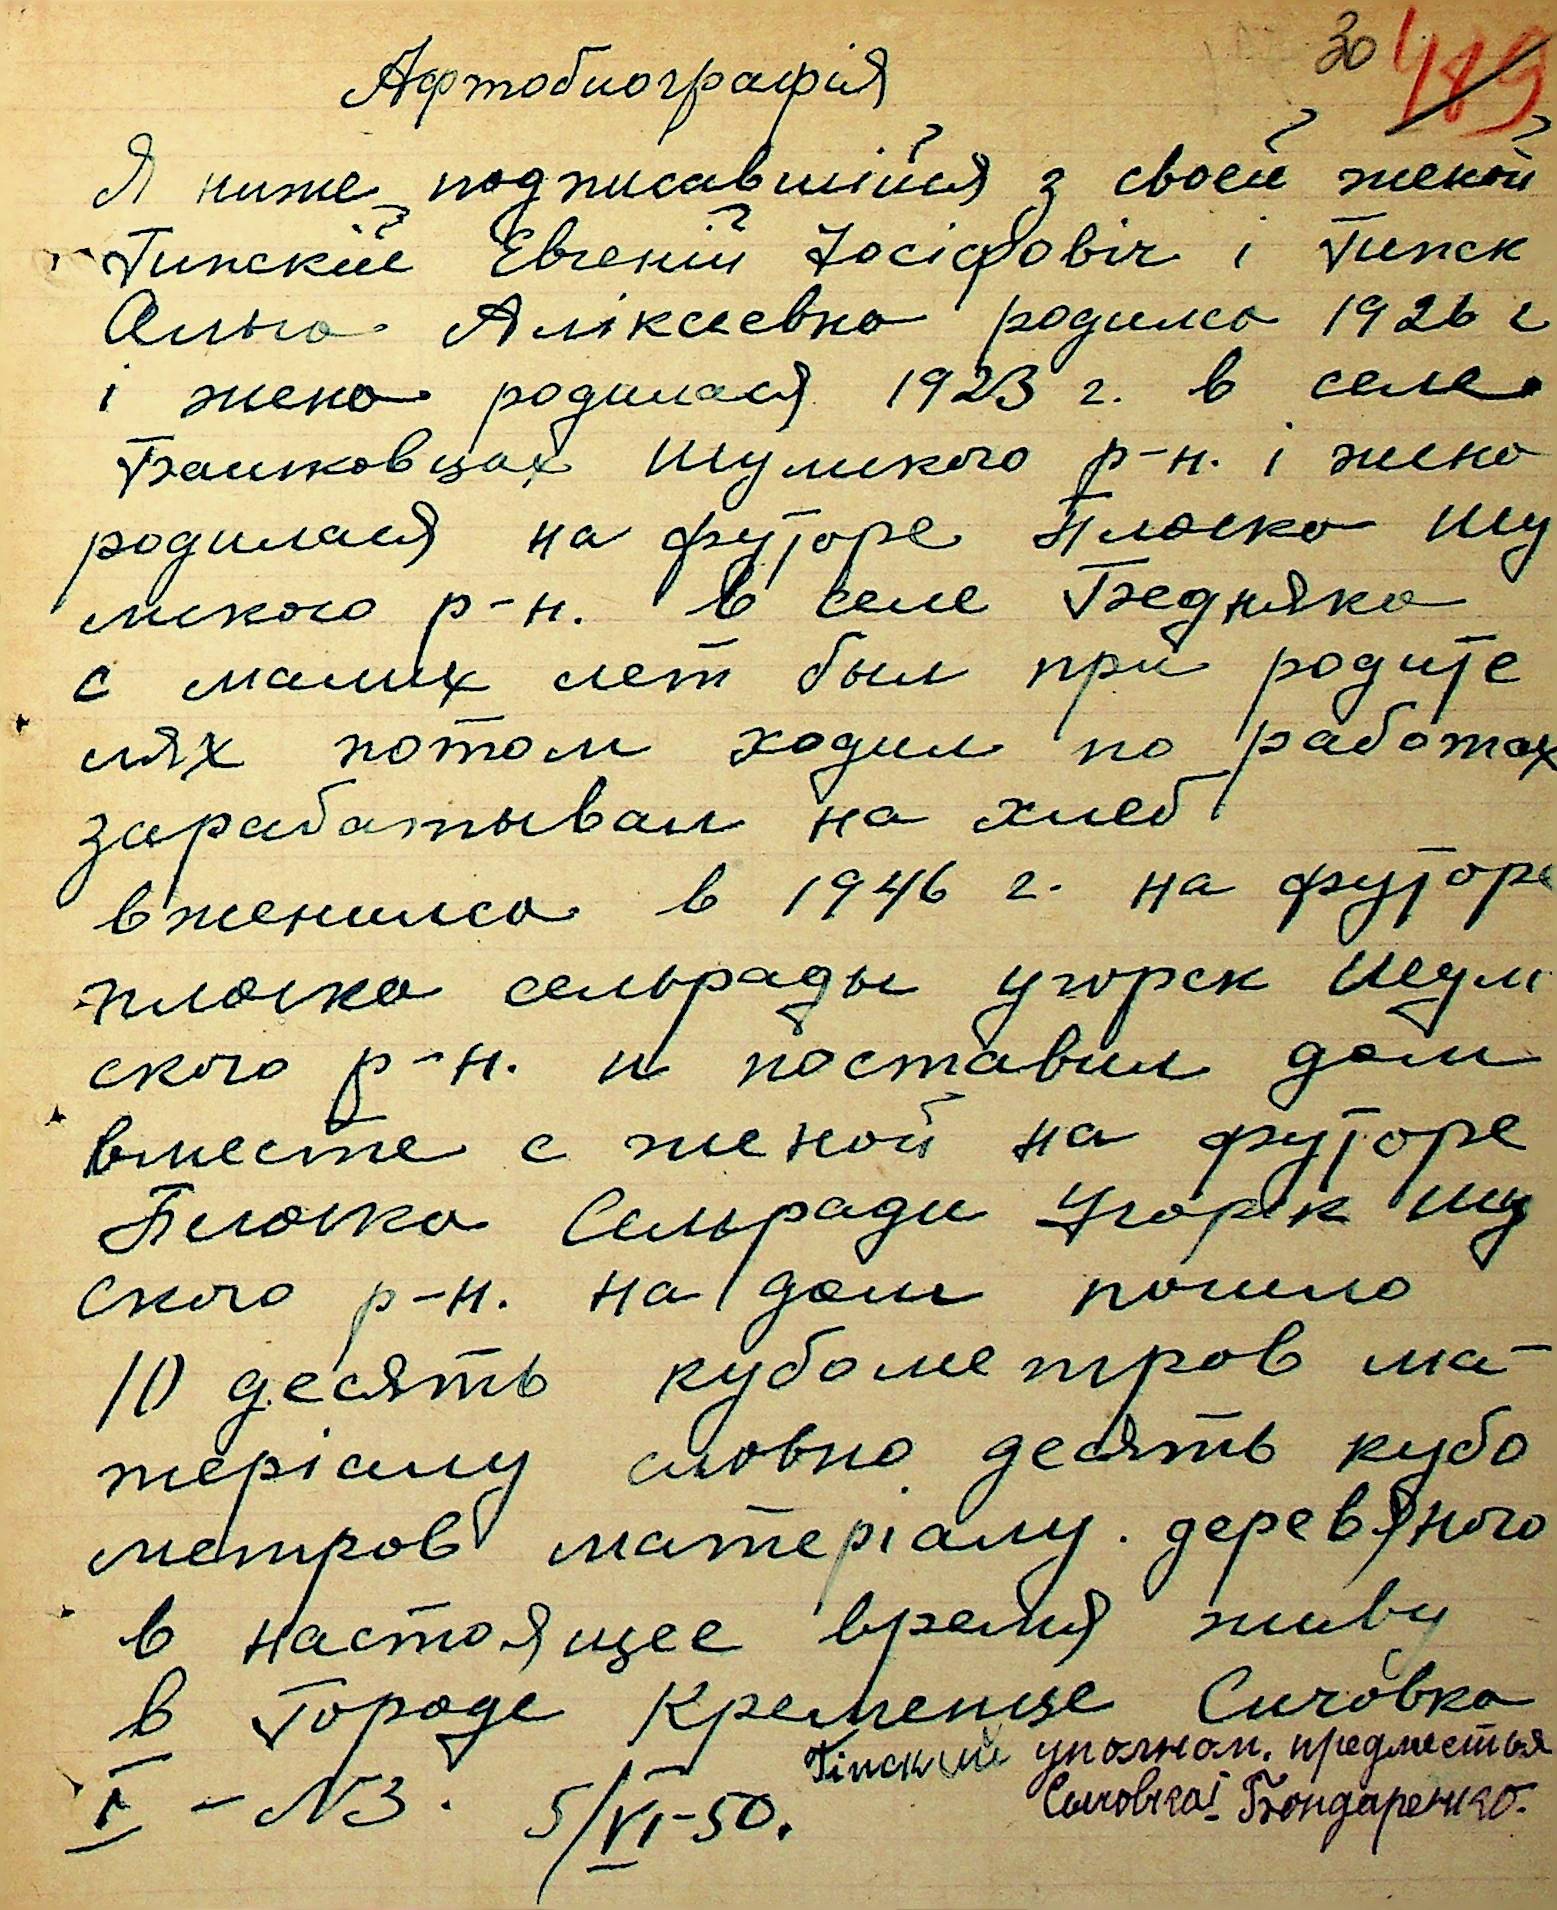 30 489
Афтобиографія
Я ниже подписавшійся з своей женой
Гипскій Евгеній Іосіфовіч і Гипск
Ольга Аліксеевна родился 1926 г
і жена родилася 1923 г. в селе
Башковцах Шумского р-н. і жена
родилася на футоре Плоска Шу
мского р-н. в селе Бедняка
с малих лет был при родите
лях потом ходил по работах
зарабатывал на хлеб
вженился в 1946 г. на футоре
плоска сельрады угорск Шум
ского р-н. и поставил дом
вместе с женой на футоре
Плоска Сельради Угорск Шу
ского р-н. на дом пошло
10 десять кубометров ма-
теріалу словно десять кубо
метров матеріалу. деревяного
в настоящее время живу
в городе Кременце Сичовка
I - N3. 5/VI-50.
Гіпский уполном. предместья
Сичовка Бондаренко.